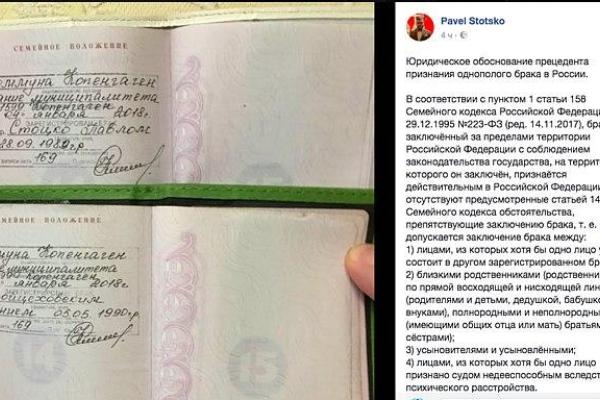 СЕМЕЙНОЕ ПОЛОЖЕНИЕ
Копенгаген
муниципалитета
1599 Копенгаген
января 2018г.
ЗАРЕГИСТРИРОВАН
Стоцко Павлом
169
СЕМЕЙНОЕ ПОЛОЖЕНИЕ
Копенгаген
муниципалитета
Копенгаген
января 2018г
05.05.1990г.р
169
14
Pavel Stotsko
4 ч ·
Юридическое обоснование прецедента
признания однополого брака в России.
В соответствии с пунктом 1 статьи 158
Семейного кодекса Российской Федерации
29.12.1995 №223-ФЗ (ред. 14.11.2017), бра
заключённый за пределами территории
Российской Федерации с соблюдением
законодательства государства, на террито
которого он заключён, признаётся
действительным в Российской Федерации
отсутствуют предусмотренные статьей 14
Семейного кодекса обстоятельства,
препятствующие заключению брака, т. е.
допускается заключение брака между:
1) лицами, из которых хотя бы одно лицо у
состоит в другом зарегистрированном бр
2) близкими родственниками (родственни
по прямой восходящей и нисходящей лин
(родителями и детьми, дедушкой, бабушко
внуками), полнородными и неполнородны
(имеющими общих отца или мать) братьям
сёстрами);
3) усыновителями и усыновлёнными;
4) лицами, из которых хотя бы одно лицо
признано судом недееспособным вследст
психического расстройства.